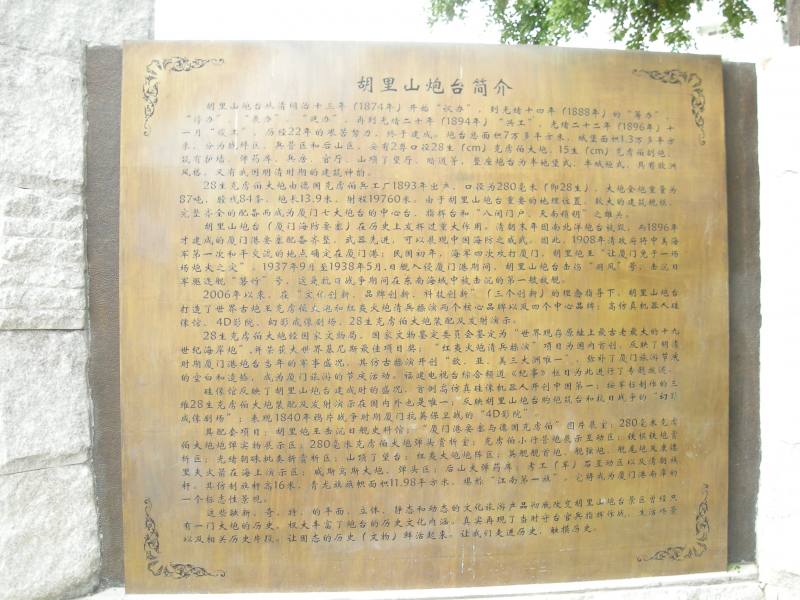 胡里山炮台简介
胡里山炮台从清同治十三年（1874年）开始“议办”，到光绪十四年（1888年）的“筹办”，
“缓办”，再到光绪二十年（1894年）“兴工”，光绪二十二年（1896年）十
一月“竣工”，历经22年的艰苦努力，终于建成。炮台总面积7万多平方米，城堡面积1.3万多平方
米，分为战坪区、兵营区和后山区。安有2尊口径28生（cm）克虏伯大炮，15生（cm）克虏伯副炮，
筑有护墙、弹药库、兵房、官厅、山顶了望厅、暗道等，整座炮台为半地堡式、半城垣式，具有欧洲
风格，又有我国明清时期的建筑神韵。
28生克虏伯大炮由德国克虏伯兵工厂1893年出产，口径为280毫米（即28生），大炮全炮重量为
87吨，膛线84条，炮长13.9米，射程19760米。由于胡里山炮台重要的地理位置、较大的建筑规模、
完整齐全的配备而成为厦门七大炮台的中心台、指挥台和“八闽门户、天南锁钥”之雄关。
胡里山炮台（厦门海防要塞）在历史上发挥过重大作用。清朝末年因南北洋炮台被毁，而1896年
才建成的厦门港要塞配备齐整，武器先进，可以展现中国海防之威武，因此，1908年清政府将中美海
军第一次和平交流的地点确定在厦门港；民国初年，海军四次攻打厦门，胡里炮王“让厦门免于一场
场炮火之灾”，1937年9月至1938年5月，日舰入侵厦门港期间，胡里山炮台击伤“羽风”号，击沉日
军驱逐舰“箬竹”号，这是抗日战争期间在东南海域中被击沉的第一艘敌舰。
2006年以来，在“文化创新、品牌创新、科技创新”（三个创新）的理念指导下，胡里山炮台
打造了世界古炮王克虏伯大炮和红夷火炮清兵操演两个核心品牌以及四个中心品牌：高仿真机器人硅
像馆、4D影院、幻影成像剧场、28生克虏伯大炮装配及发射演示。
28生克虏伯大炮经国家文物局、国家文物鉴定委员会鉴定为“世界现存原址上最古老最大的十九
世纪海岸炮”，并荣获大世界基尼斯最佳项目奖；“红夷火炮清兵操演”项目为国内首创，反映了明清
时期厦门港炮台当年的军事盛况，其仿古操演开创“欧、亚、美三大洲唯一”，弥补了厦门旅游节庆
的空白和遗憾，成为厦门旅游的节庆活动。福建电视台综合频道《纪事》栏目为此进行了专题报道；
硅像馆反映了胡里山炮台建成时的盛况，首例高仿真硅像机器人开创中国第一；按军标制作的三
维28生克虏伯大炮装配及发射演示在国内外也是唯一；反映胡里山炮台购炮筑台和抗日战争的“幻影
成像剧场”；表现1840年鸦片战争时期厦门抗英保卫战的“4D影院”。
其配套项目：胡里炮王击沉日舰史料馆；“厦门港要塞与德国克虏伯”图片展室；280毫米克虏
伯大炮炮弹实物展示区；280毫米克虏伯大炮弹头赏析室；克虏伯小行营炮展示互动区；铁模铁炮赏
析区；光绪朝珠帆泰斩赏析区；山顶了望台；红夷大炮炮阵区；英舰舰首炮、舰艏炮、舰尾炮及康格
里夫火箭在海上演示区；威斯窝斯大炮、弹头区；后山大弹药库；考工（军）石互动区以及清朝族
杆。其仿制旗杆高16米，青龙旗旗帜面积11.98平方米，堪称“江南第一旗”，它将成为厦门港南岸的
一个标志性景观。
这些融新、奇、特，的平面、立体、静态和动态的文化旅游产品彻底改变胡里山炮台景区曾经只
有一门大炮的历史，极大丰富了炮台的历史文化内涵，真实再现了当时守台官兵指挥作战、生活场景
以及相关历史片段，让固态的历史（文物）鲜活起来，让我们走进历史，触摸历史。